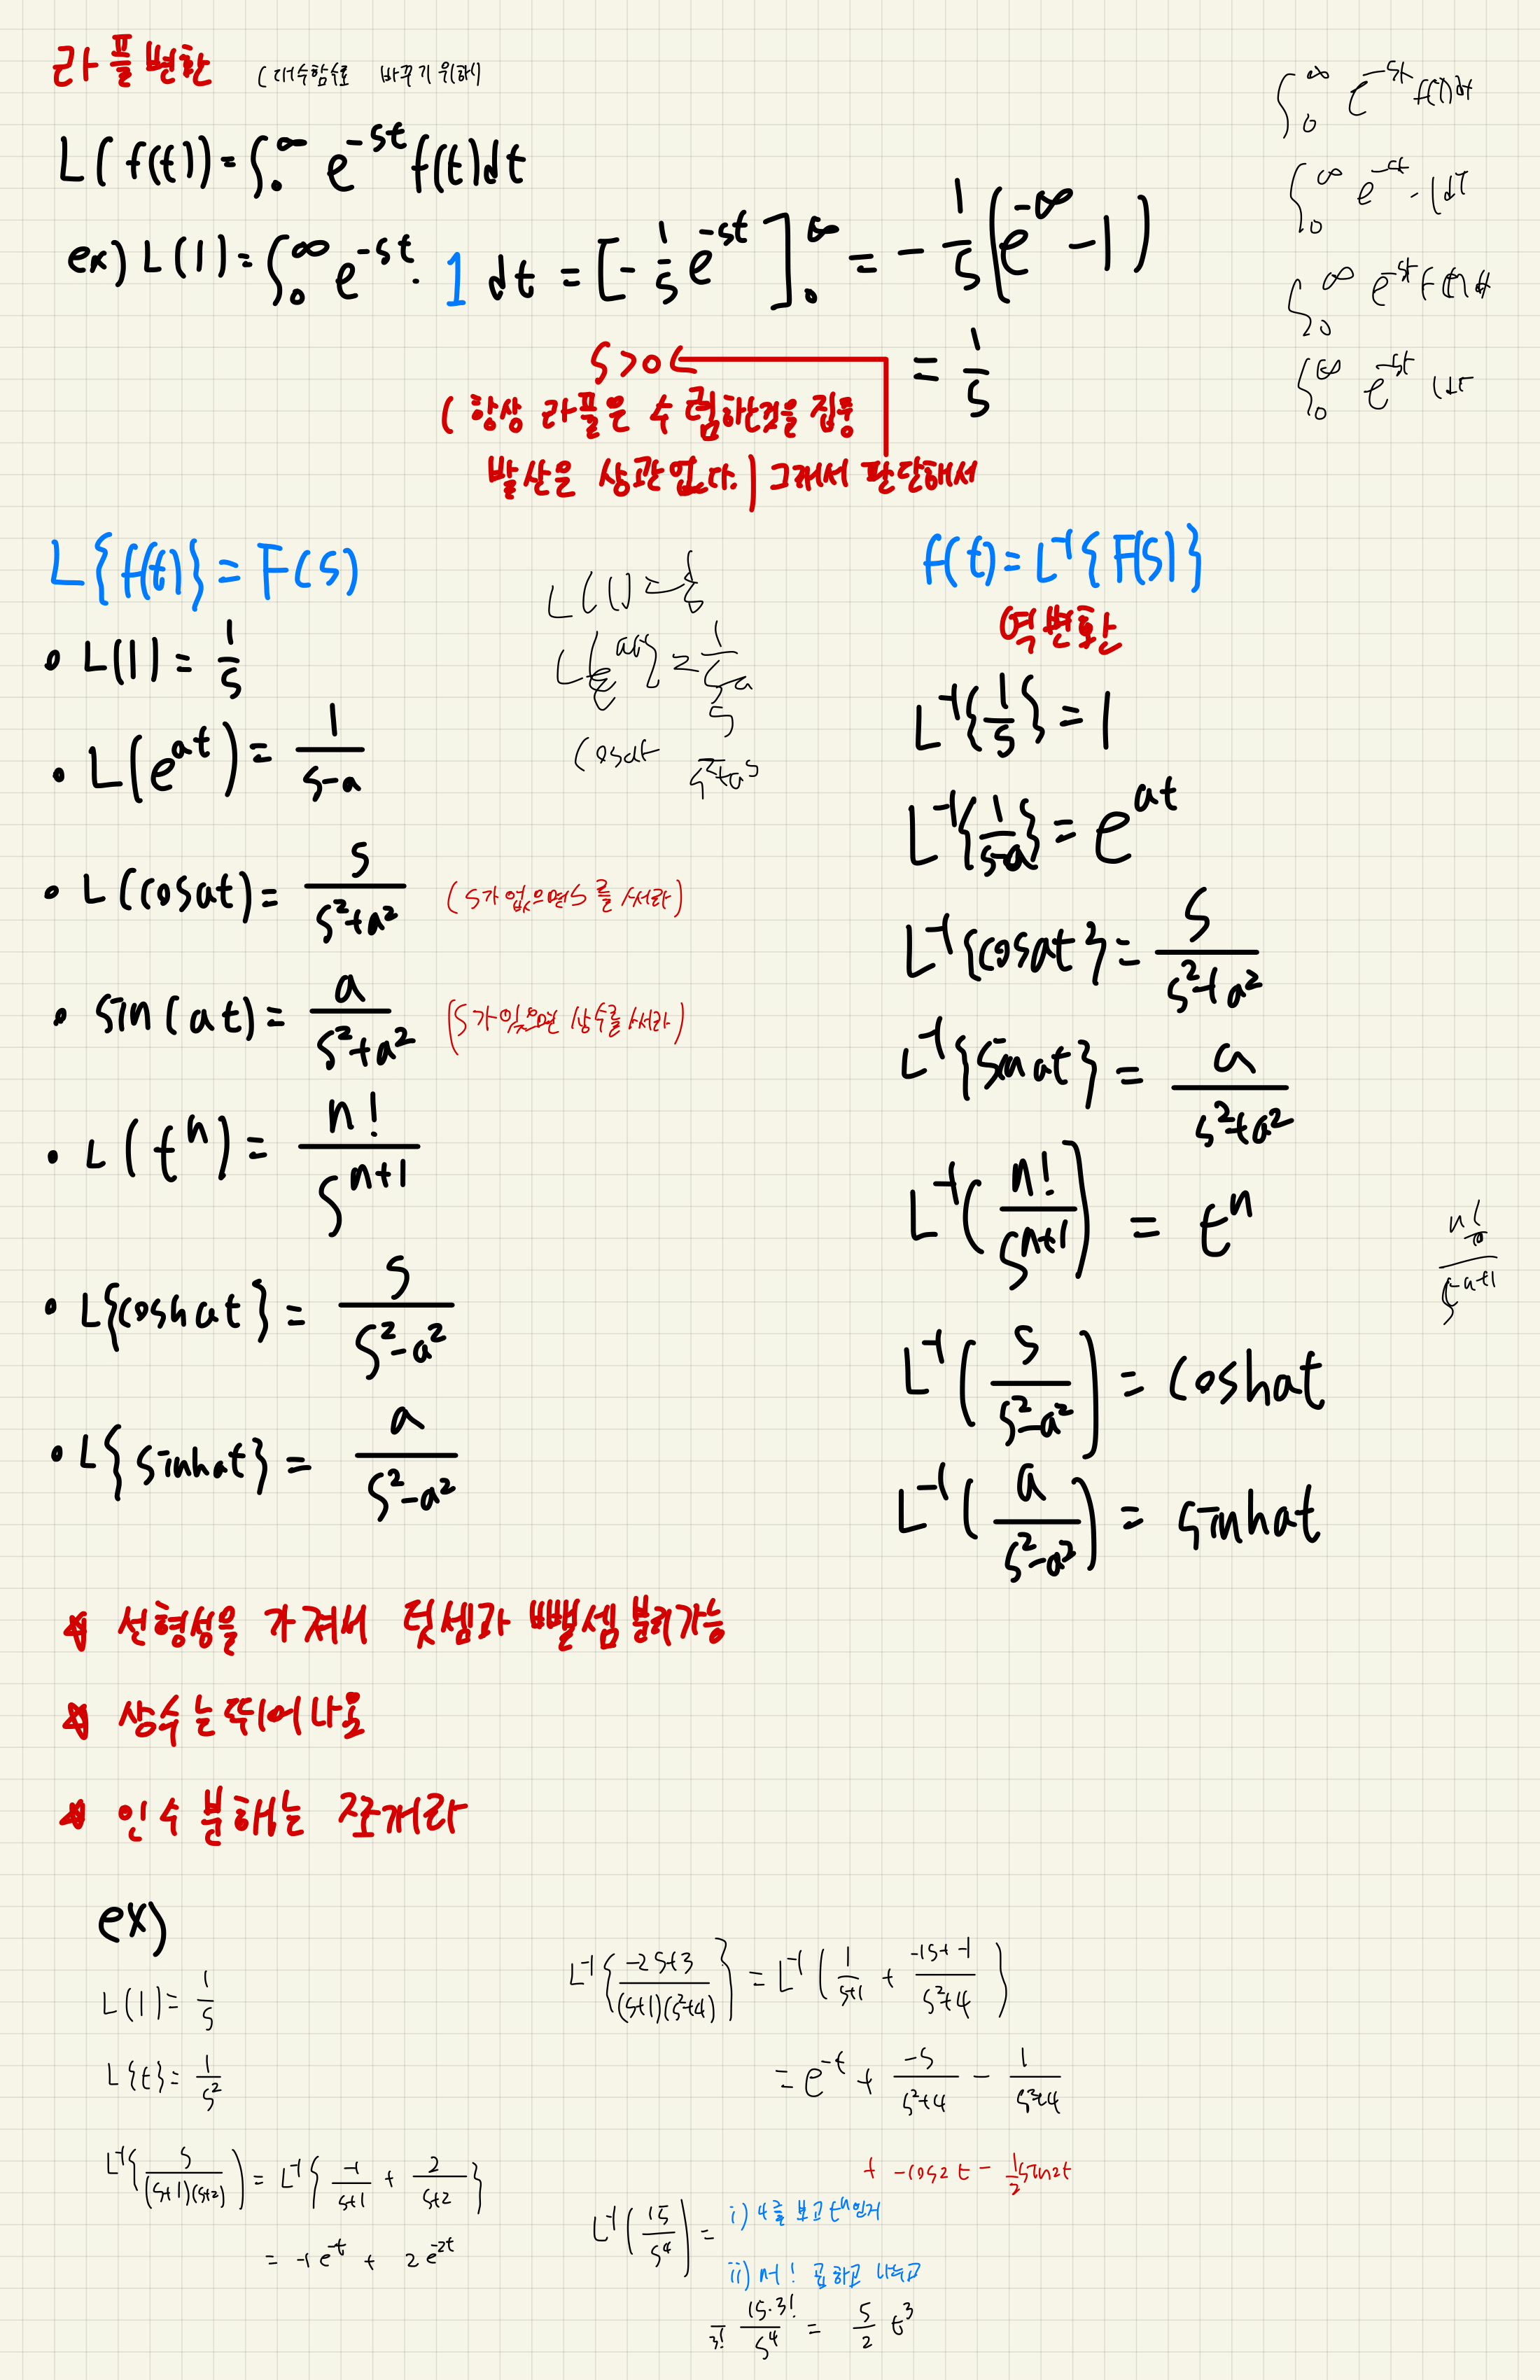 라플변환 (대수함수로 바꾸기 위해)
L(f(t)) = ∫₀^∞ e^{-st} f(t)dt
ex) L(1) = ∫₀^∞ e^{-st}· 1 dt = [-1/s e^{-st}]₀^∞ = -1/s (e^{-∞} - 1)
= 1/s
s>0 ←
( 항상 라플은 수렴하는것을 집중
발산은 상관없다.) 그래서 판단해서
∫₀^∞ e^{-st} f(t)dt
∫₀^∞ e^{-st}·1dt
∫₀^∞ e^{-st} f(t)dt
∫₀^∞ e^{-st} 1dt
L{f(t)} = F(s)
• L(1) = 1/s
• L(e^{at}) = 1/(s-a)
• L(cosat) = s/(s²+a²) (s가 없으면 s를 써라)
• sin(at) = a/(s²+a²) (s가 있으면 상수를 써라)
• L(t^n) = n!/s^{n+1}
• L{coshat} = s/(s²-a²)
• L{sinhat} = a/(s²-a²)
L(1) = 1/s
L{e^{at}} = 1/(s-a)
cosat
f(t) = L⁻¹{F(s)}
역변환
L⁻¹{1/s} = 1
L⁻¹{1/(s-a)} = e^{at}
L⁻¹{cosat} = s/(s²+a²)
L⁻¹{sinat} = a/(s²+a²)
L⁻¹(n!/s^{n+1}) = t^n
L⁻¹(s/(s²-a²)) = coshat
L⁻¹(a/(s²-a²)) = sinhat
☆ 선형성을 가져서 덧셈과 뺄셈 분리가능
☆ 상수는 뛰어나옴
☆ 인수분해는 쪼개라
ex)
L(1) = 1/s
L{t} = 1/s²
L⁻¹{s/((s+1)(s+2))} = L⁻¹{-1/(s+1) + 2/(s+2)}
= -1e^{-t} + 2e^{-2t}
L⁻¹{(-2s+3)/((s+1)(s²+4))} = L⁻¹(1/(s+1) + (-1s+-1)/(s²+4))
= e^{-t} + -s/(s²+4) - 1/(s²+4)
+ -cos2t - 1/2 sin2t
L⁻¹(15/s⁴) =
i) 4를 보고 t^n인거
ii) n! 곱하고 나누고
1/3! 15·3!/s⁴ = 5/2 t³